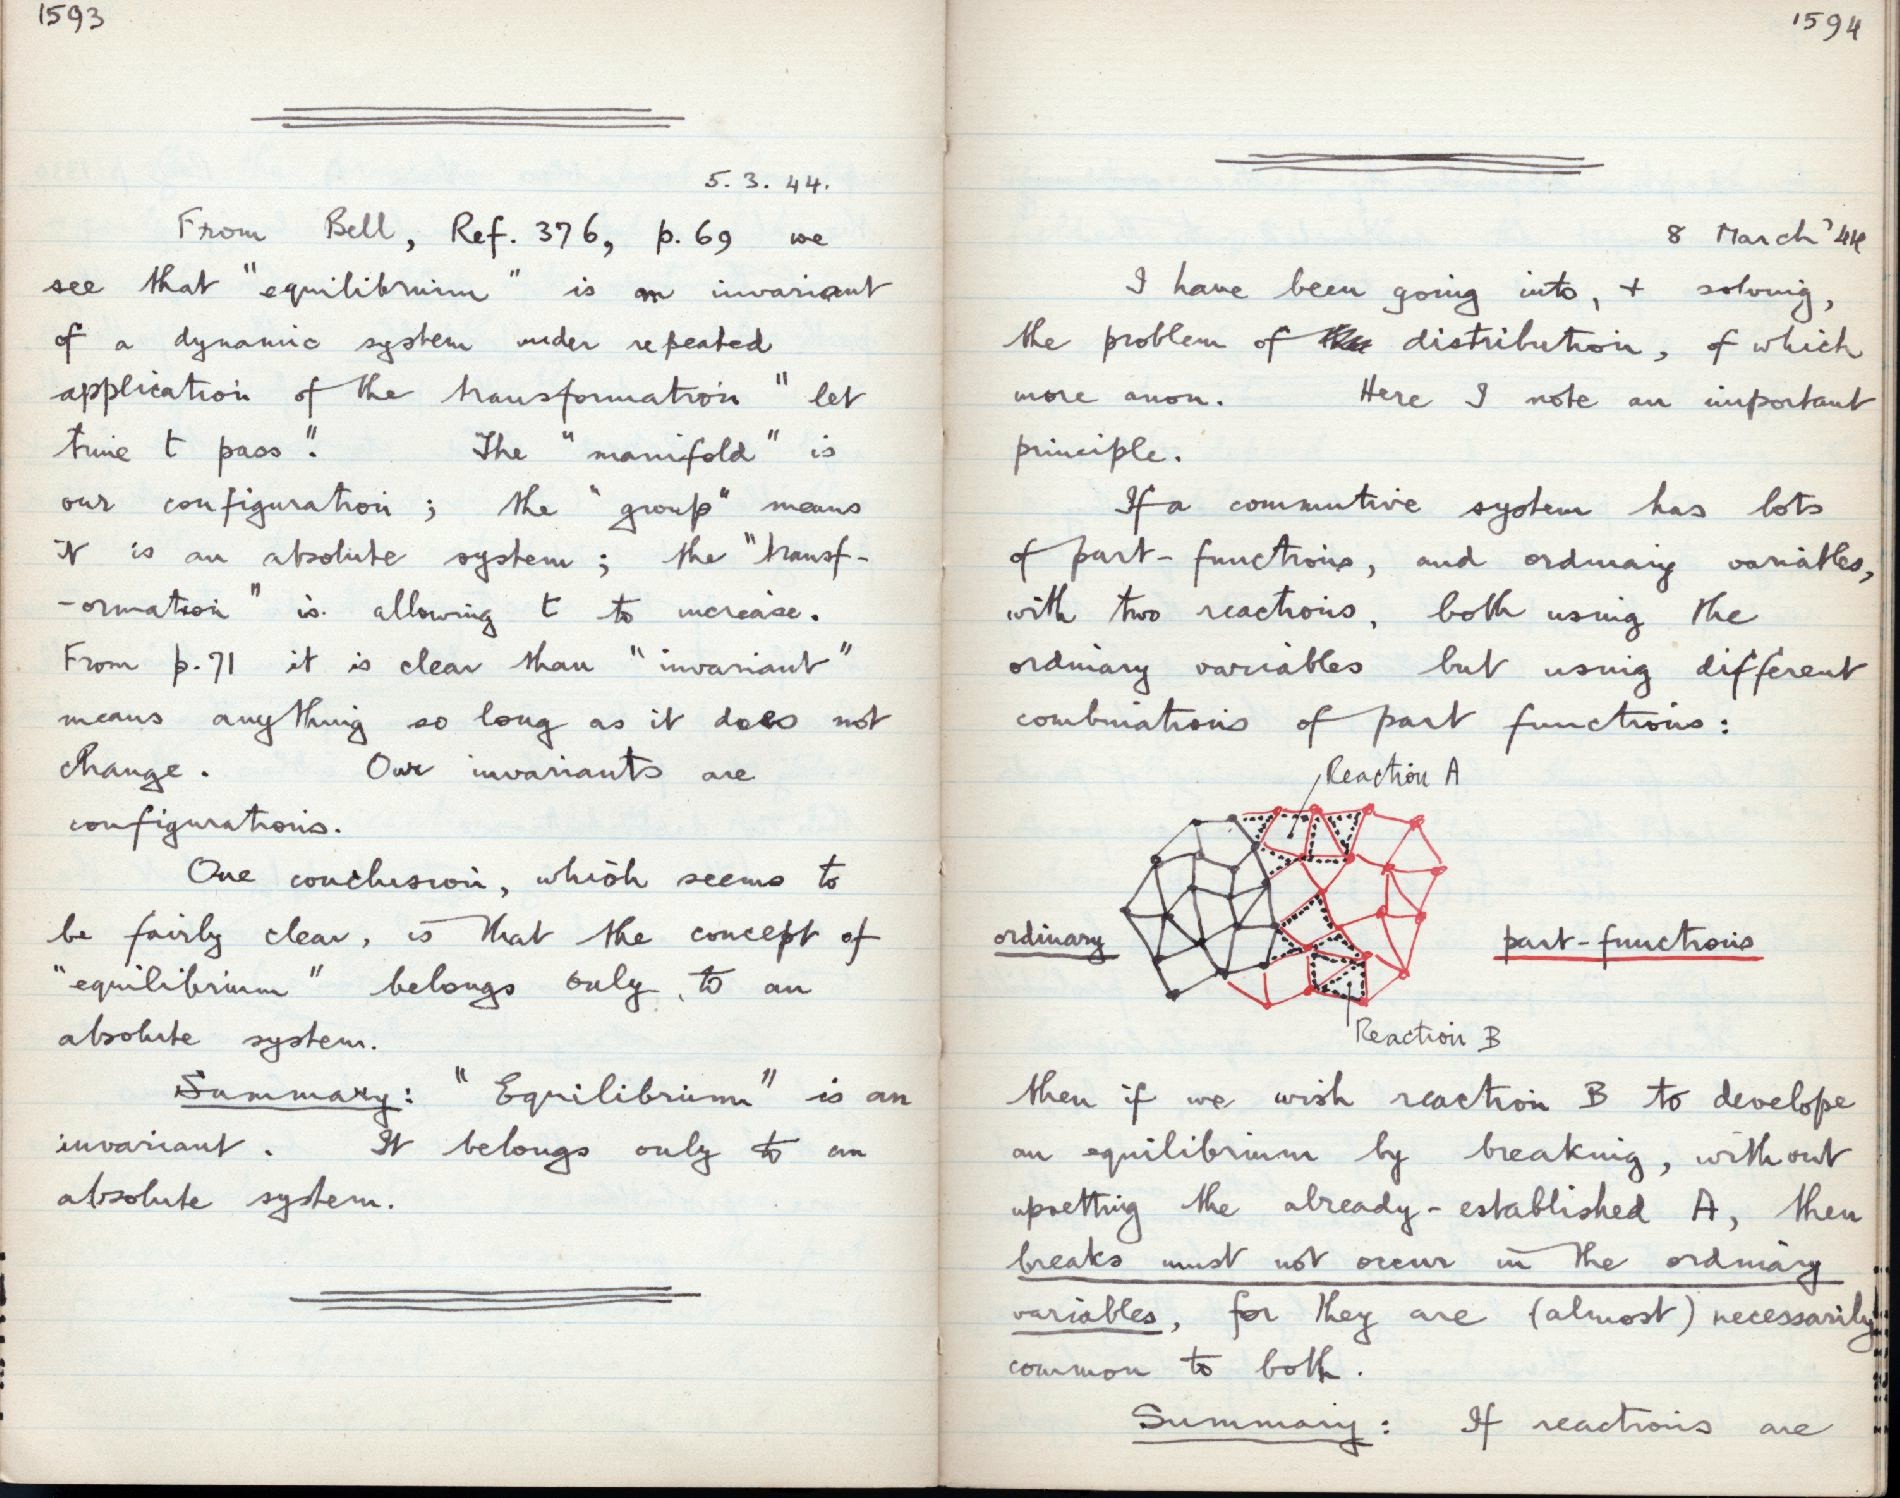 1593
5. 3. 44.
From Bell, Ref. 376, p. 69 we
see that "equilibrium" is an invariant
of a dynamic system under repeated
application of the transformation "let
time t pass". The "manifold" is
our configuration; the "group" means
it is an absolute system; the "transf-
-ormation" is allowing t to increase.
From p.71 it is clear than "invariant"
means anything so long as it does not
change. Our invariants are
configurations.
One conclusion, which seems to
be fairly clear, is that the concept of
"equilibrium" belongs only to an
absolute system.
Summary: "Equilibrium" is an
invariant. It belongs only to an
absolute system.
1594
8 March '44
I have been going into, + solving,
the problem of distribution, of which
more anon. Here I note an important
principle.
If a commutive system has lots
of part-functions, and ordinary variables,
with two reactions, both using the
ordinary variables but using different
combinations of part functions:
Reaction A
ordinary
part-functions
Reaction B
then if we wish reaction B to develope
an equilibrium by breaking, without
upsetting the already-established A, then
breaks must not occur in the ordinary
variables, for they are (almost) necessarily
common to both.
Summary: If reactions are